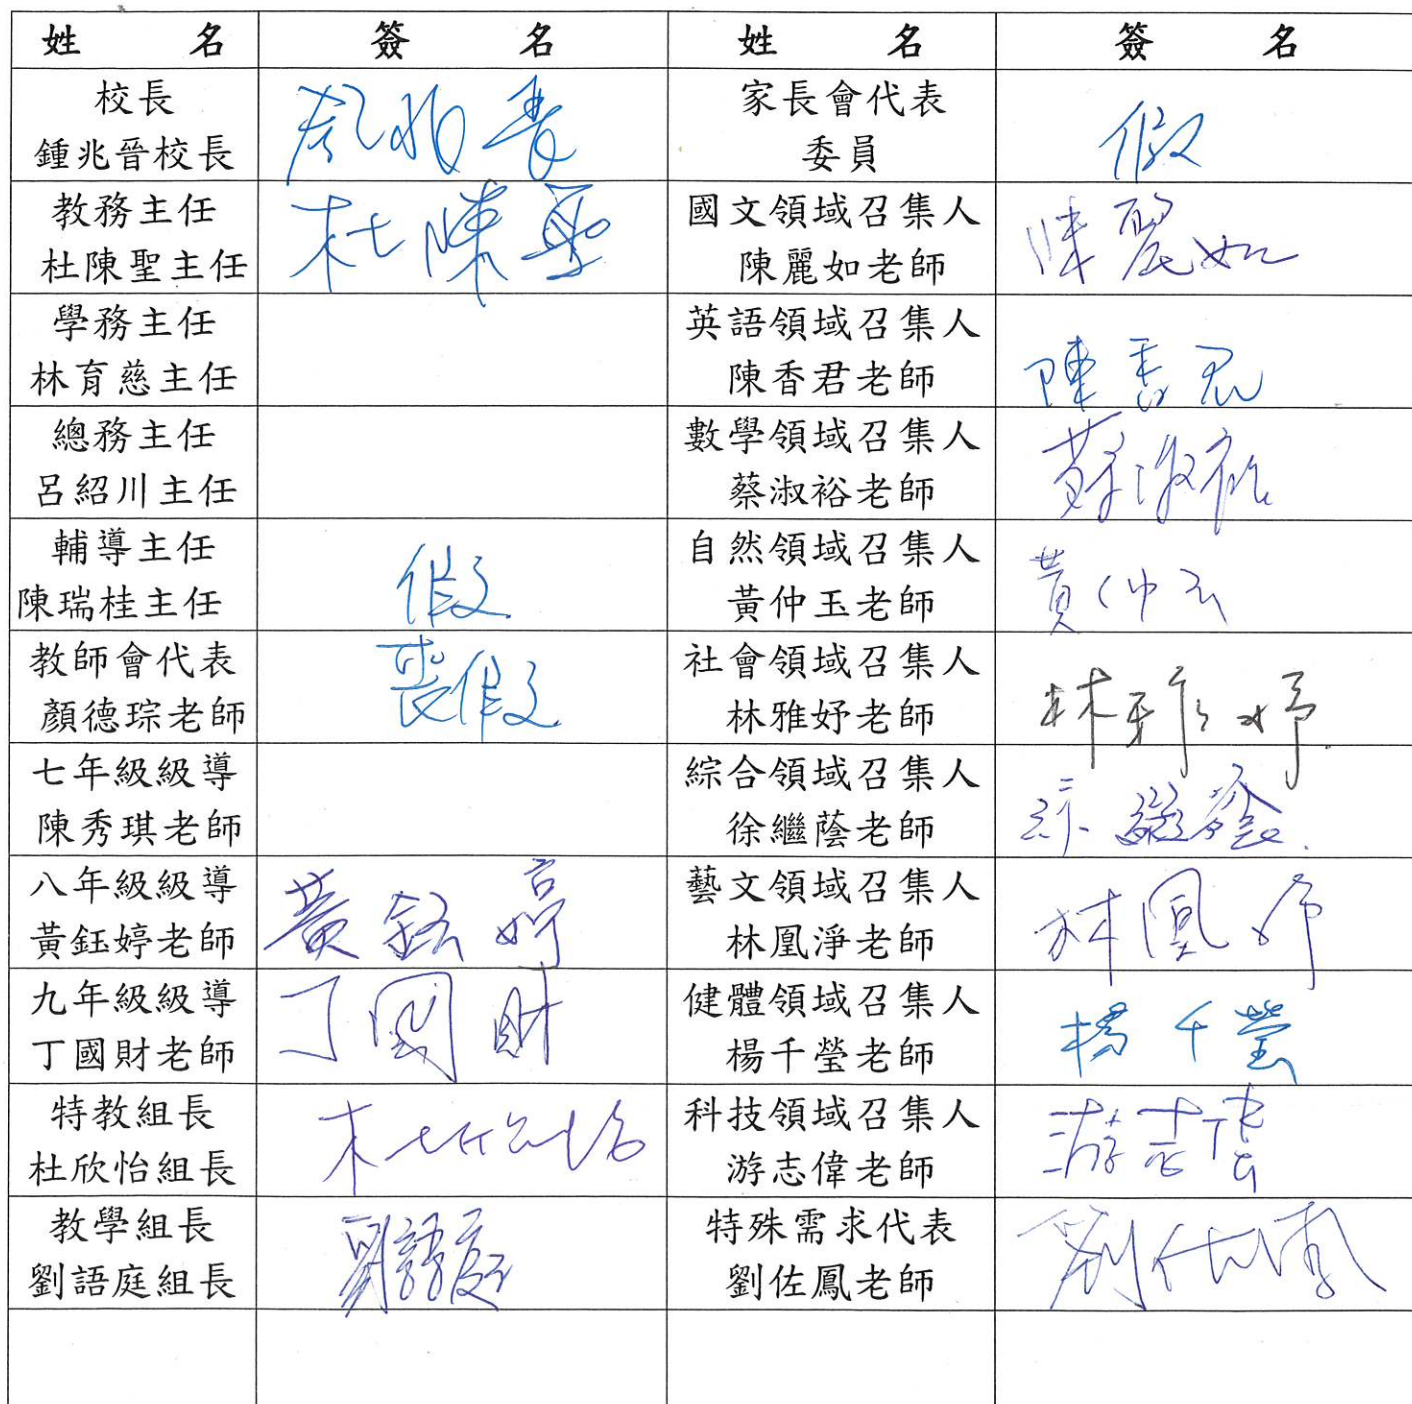 姓 名 簽 名 姓 名 簽 名
校長
鍾兆晉校長
鍾兆晉
家長會代表
委員
假
教務主任
杜陳聖主任
杜陳聖
國文領域召集人
陳麗如老師
陳麗如
學務主任
林育慈主任
英語領域召集人
陳香君老師
陳香君
總務主任
呂紹川主任
數學領域召集人
蔡淑裕老師
蔡淑裕
輔導主任
陳瑞桂主任
假
自然領域召集人
黃仲玉老師
黃仲玉
教師會代表
顏德琮老師
喪假
社會領域召集人
林雅妤老師
林雅妤
七年級級導
陳秀琪老師
綜合領域召集人
徐繼蔭老師
徐繼蔭
八年級級導
黃鈺婷老師
黃鈺婷
藝文領域召集人
林凰淨老師
林凰淨
九年級級導
丁國財老師
丁國財
健體領域召集人
楊千瑩老師
楊千瑩
特教組長
杜欣怡組長
杜欣怡
科技領域召集人
游志偉老師
游志偉
教學組長
劉語庭組長
劉語庭
特殊需求代表
劉佐鳳老師
劉佐鳳